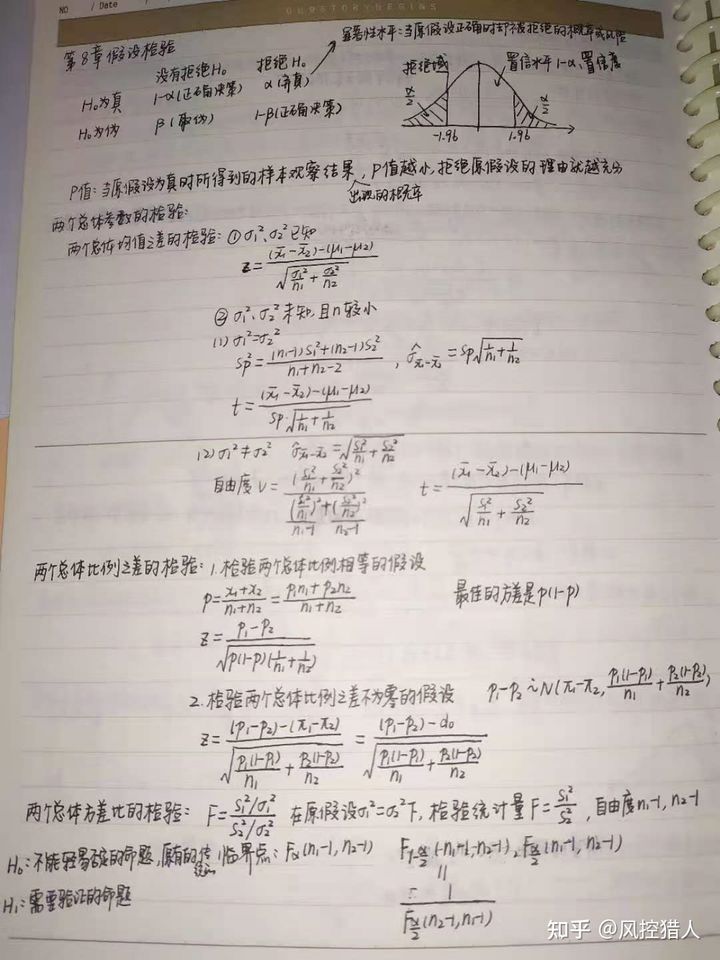 NO / Date
OURSTORYBEGINS
第8章假设检验
显著性水平:当原假设正确时却被拒绝的概率或风险
没有拒绝H₀ 拒绝H₀
H₀为真 1-α(正确决策) α(弃真)
H₀为伪 β(取伪) 1-β(正确决策)
拒绝域 置信水平1-α,置信度
α/2 α/2
-1.96 1.96
P值:当原假设为真时所得到的样本观察结果出现的概率,P值越小,拒绝原假设的理由就越充分
两个总体参数的检验:
两个总体均值之差的检验:①σ₁²、σ₂²已知
z=((x̄₁-x̄₂)-(μ₁-μ₂))/√(σ₁²/n₁+σ₂²/n₂)
②σ₁²、σ₂²未知,且n较小
(1)σ₁²=σ₂²
Sp²=((n₁-1)S₁²+(n₂-1)S₂²)/(n₁+n₂-2) , σ̂x̄₁-x̄₂=Sp√(1/n₁+1/n₂)
t=((x̄₁-x̄₂)-(μ₁-μ₂))/(Sp·√(1/n₁+1/n₂))
(2)σ₁²≠σ₂² σ̂x̄₁-x̄₂=√(S₁²/n₁+S₂²/n₂)
自由度ν=(S₁²/n₁+S₂²/n₂)²/((S₁²/n₁)²/(n₁-1)+(S₂²/n₂)²/(n₂-1)) t=((x̄₁-x̄₂)-(μ₁-μ₂))/√(S₁²/n₁+S₂²/n₂)
两个总体比例之差的检验:1.检验两个总体比例相等的假设
p=(x₁+x₂)/(n₁+n₂)=(p₁n₁+p₂n₂)/(n₁+n₂) 最佳的方差是p(1-p)
z=(p₁-p₂)/√(p(1-p)(1/n₁+1/n₂))
2.检验两个总体比例之差不为零的假设 p₁-p₂~N(π₁-π₂,p₁(1-p₁)/n₁+p₂(1-p₂)/n₂)
z=((p₁-p₂)-(π₁-π₂))/√(p₁(1-p₁)/n₁+p₂(1-p₂)/n₂)=((p₁-p₂)-d₀)/√(p₁(1-p₁)/n₁+p₂(1-p₂)/n₂)
两个总体方差比的检验:F=(S₁²/σ₁²)/(S₂²/σ₂²) 在原假设σ₁²=σ₂²下,检验统计量F=S₁²/S₂²,自由度n₁-1,n₂-1
H₀:不能轻易否定的命题,原有的、传统的
临界点:Fα(n₁-1,n₂-1) F1-α/2(n₁-1,n₂-1),Fα/2(n₁-1,n₂-1)
H₁:需要验证的命题
=1/Fα/2(n₂-1,n₁-1)
知乎 @风控猎人